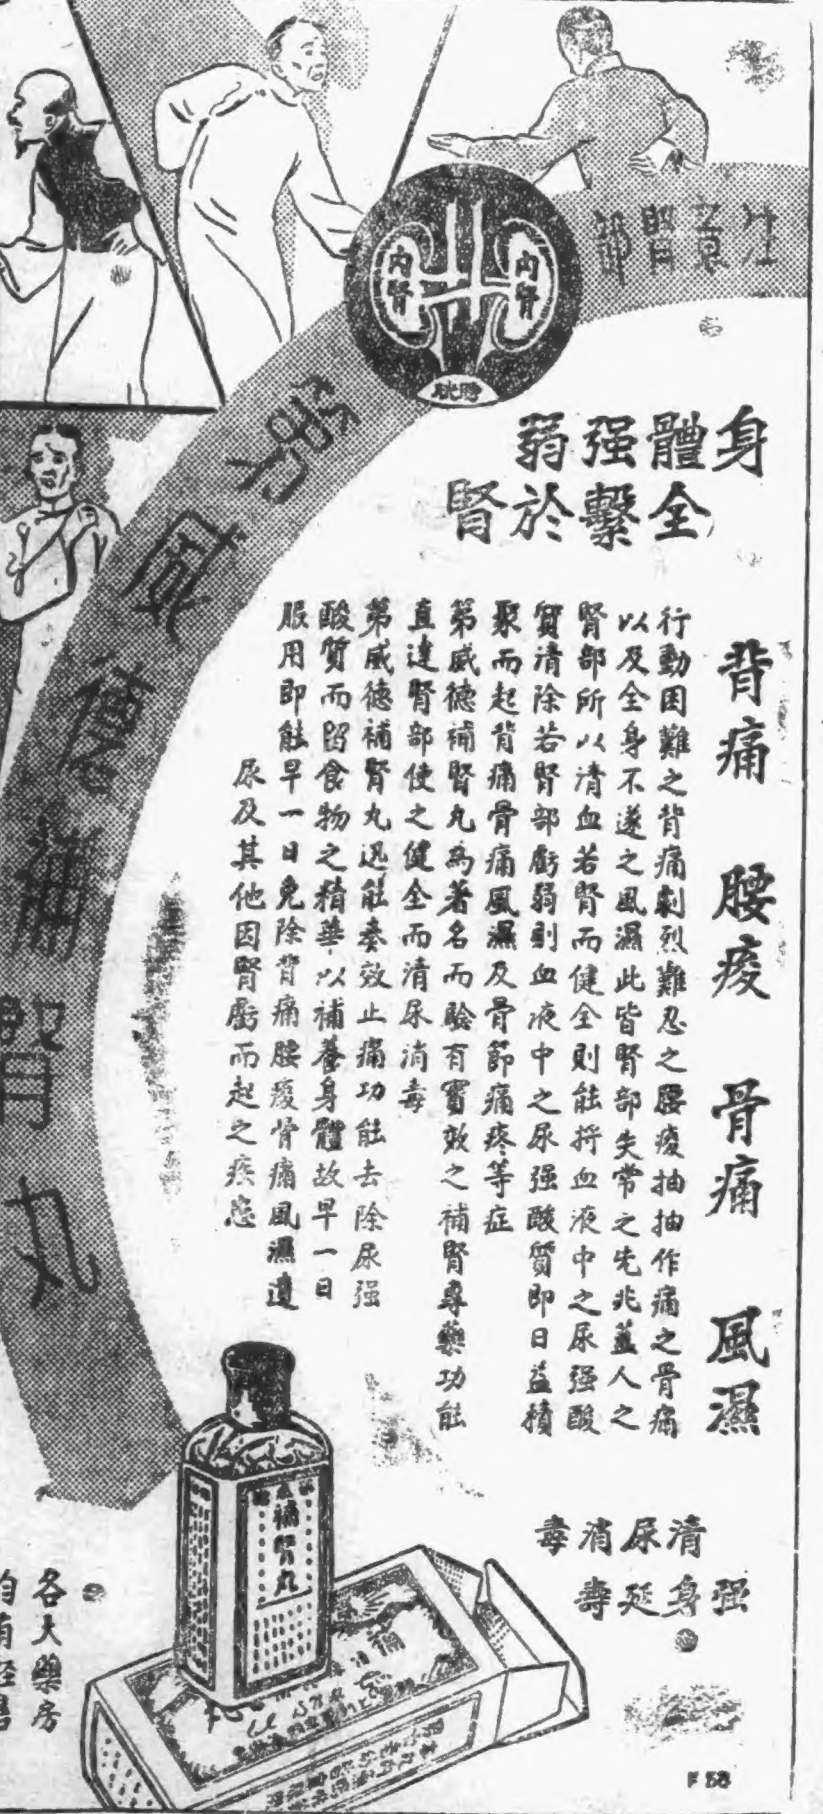 注意腎部
內腎
內腎
膀胱
第威德補腎丸
身體强弱
全繫於腎
背痛 腰痠 骨痛 風濕
行動困難之背痛劇烈難忍之腰痠抽抽作痛之骨痛
以及全身不遂之風濕此皆腎部失常之先兆蓋人之
腎部所以清血若腎而健全則能將血液中之尿强酸
質清除若腎部虧弱則血液中之尿强酸質即日益積
聚而起背痛骨痛風濕及骨節痛疼等症
第威德補腎丸為著名而驗有實效之補腎專藥功能
直達腎部使之健全而清尿消毒
第威德補腎丸迅能奏效止痛功能去除尿强
酸質而留食物之精華以補養身體故早一日
服用即能早一日免除背痛腰痠骨痛風濕遺
尿及其他因腎虧而起之疾患
清尿消毒
强身延壽
補腎丸
補
各大藥房
均有經售
F 58